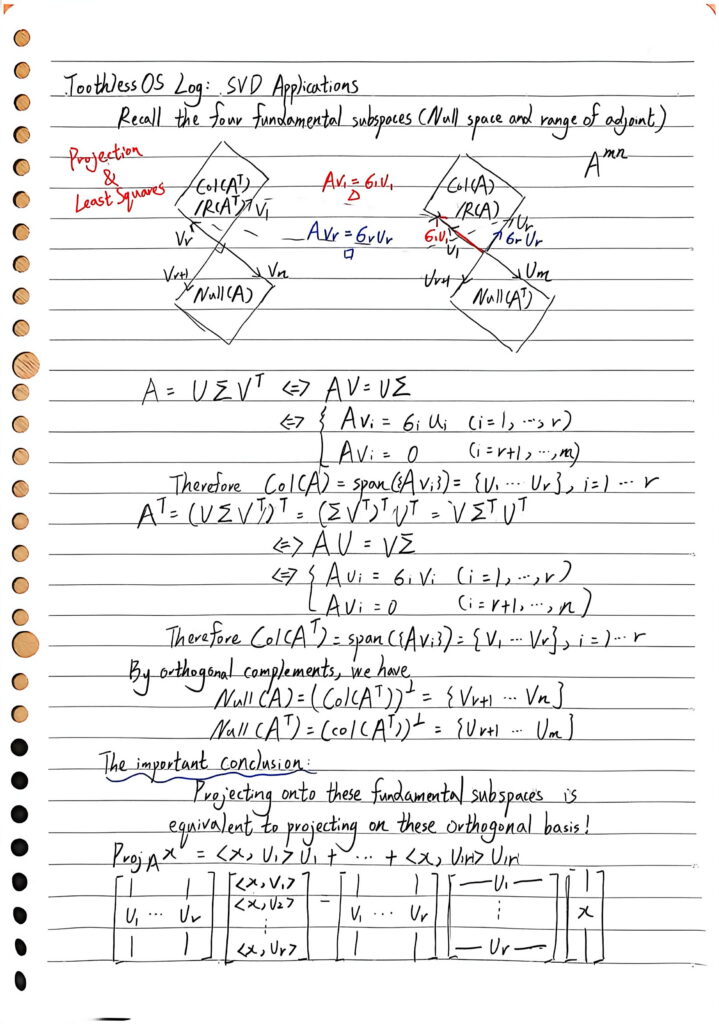 ToothlessOS Log: SVD Applications
Recall the four fundamental subspaces (Null space and range of adjoint)
Projection
&
Least Squares
Col(Aᵀ)
/R(Aᵀ)
V₁
Vr
Vr+1
Vn
Null(A)
Av₁ = σ₁u₁
Avr = σrur
Col(A)
/R(A)
Ur
σ₁u₁
U₁
σrUr
Ur+1
Um
Null(Aᵀ)
Aᵐⁿ
A = UΣVᵀ <=> AV = UΣ
<=> { Avi = σi ui (i=1, ..., r)
Avi = 0 (i=r+1, ..., m)
Therefore Col(A) = span({Avi}) = {U₁ ... Ur}, i=1 ... r
Aᵀ = (UΣVᵀ)ᵀ = (ΣVᵀ)ᵀUᵀ = VΣᵀUᵀ
<=> AU = VΣ
<=> { Aui = σi vi (i=1, ..., r)
Aui = 0 (i=r+1, ..., n)
Therefore Col(Aᵀ) = span({Avi}) = {V₁ ... Vr}, i=1 ... r
By orthogonal complements, we have
Null(A) = (Col(Aᵀ))⊥ = {Vr+1 ... Vn}
Null(Aᵀ) = (col(Aᵀ))⊥ = {Ur+1 ... Um}
The important conclusion:
Projecting onto these fundamental subspaces is
equivalent to projecting on these orthogonal basis!
Proj_A x = <x, U₁> U₁ + ... + <x, Ur> Ur
[U₁ ... Ur] [<x, U₁> <x, U₂> ⋮ <x, Ur>] = [U₁ ... Ur] [—U₁— ⋮ —Ur—] [x]